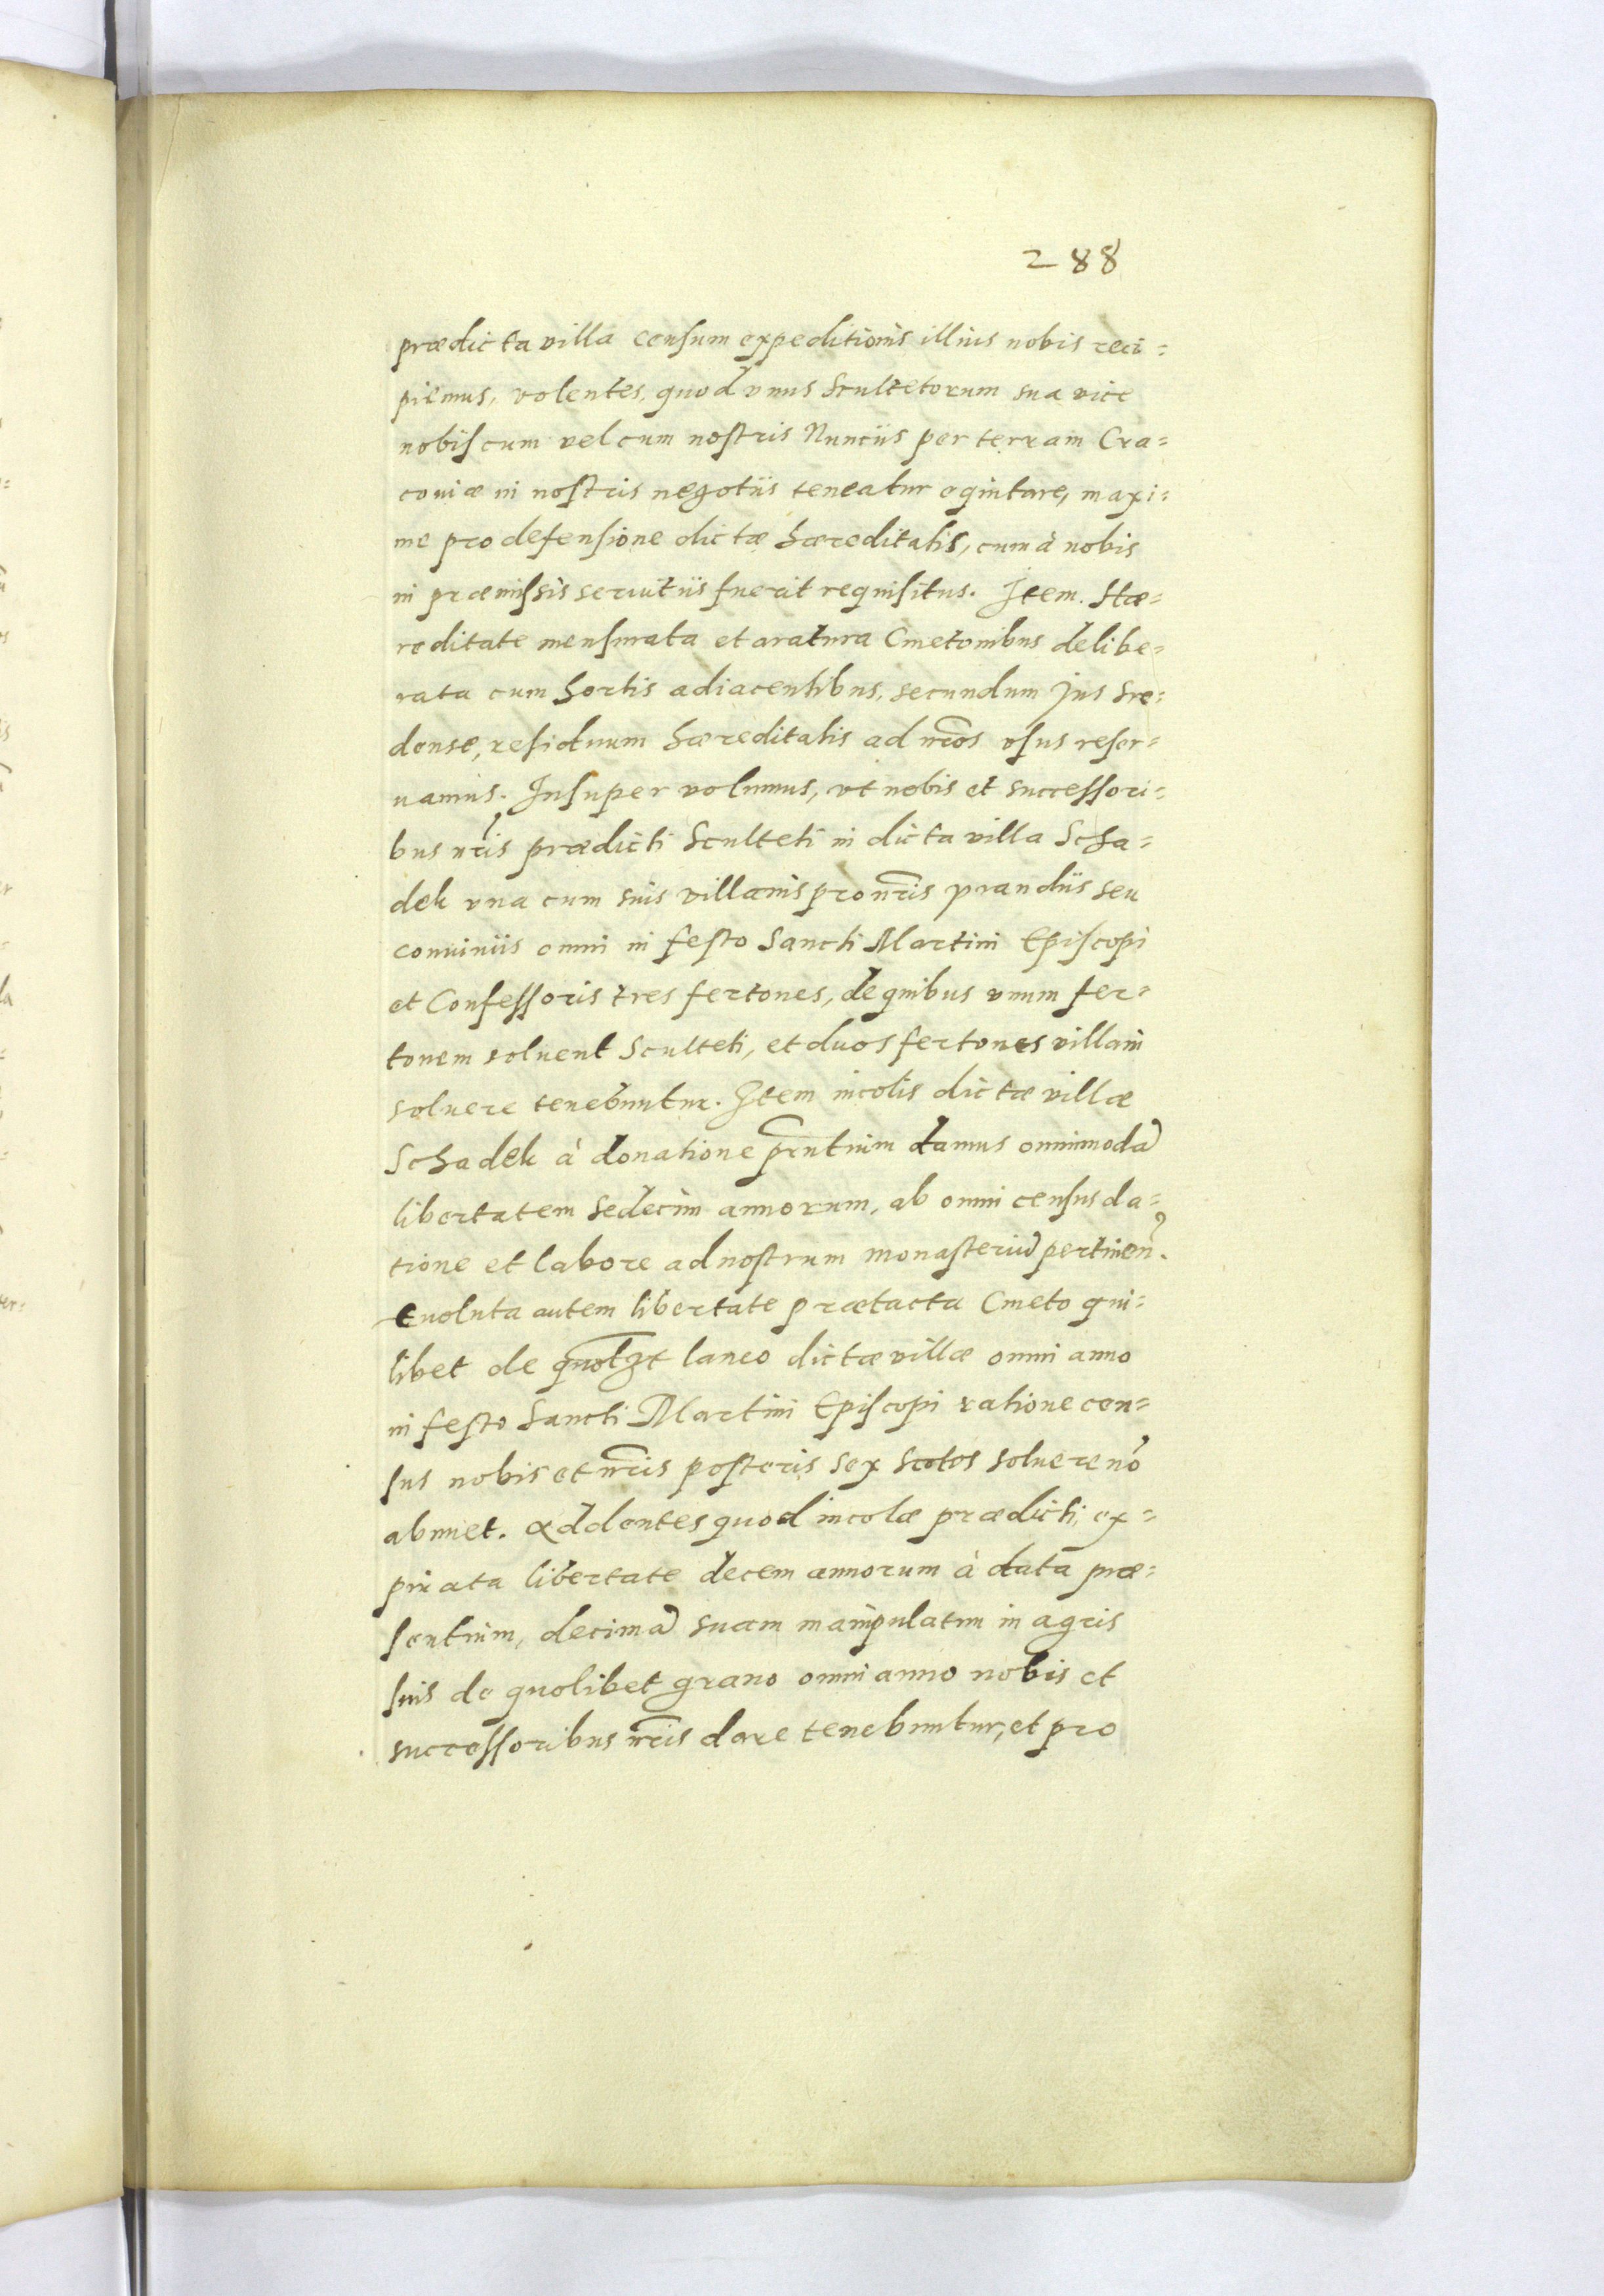 288
prædicta villa censum expeditionis illius nobis reci=
piemus, volentes, quod vnus Scultetorum sua vice
nobiscum vel cum nostris Nuncijs per terram Cra=
coviæ in nostris negotijs teneatur eqiutare, maxi=
me pro defensione dictæ hæreditatis, cum à nobis
in præmissis serviitijs fuerit requisitus. Item. Hæ=
reditate mensurata et aratura Cmetonibus delibe=
rata cum hortis adiacentibus, secundum Jus Sre=
dense, residuum hæreditatis ad nr̃os vsus reser=
uamus. Insuper volumus, vt nobis et successori=
bus nr̃is prædicti Sculteti in dicta villa Scha=
dek vna cum suis villanis pro nr̃is prandijs seu
conuiuijs omni in festo Sancti Martini Episcopi
et Confessoris tres fertones, de quibus vnum fer=
tonem soluent Sculteti, et duos fertones villani
soluere tenebuntur. Item incolis dictæ villæ
Schadek à donatione pr̃ntium damus omnimodã
libertatem sedecim annorum, ab omni census da=
tione et labore ad nostrum monasteriũ pertinen̄.
Euoluta autem libertate prætacta Cmeto qui=
libet de quolꝫt laneo dictæ villæ omni anno
in festo Sancti Martini Episcopi ratione cen=
sus nobis et nr̃is posteris sex scotos soluere nõ
abnuet. Addentes quod incolæ prædicti, ex=
pirata libertate decem annorum à data præ=
sentium, decimã suam manipulatim in agris
suis de quolibet grano omni anno nobis et
successoribus nr̃is dare tenebuntur, et pro